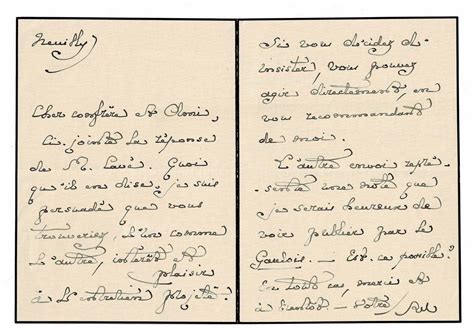 Neuilly
Cher confrère et Ami,
Ci-jointe la réponse
de M. Lavé. Quoi
qu'il en dise, je suis
persuadé que vous
trouveriez, l'un comme
l'autre, intérêt et
plaisir
à l'entretien projeté.
Si vous décidez d'
insister, vous pouvez
agir directement, en
vous recommandant
de moi.
L'autre envoi repré-
sente une note que
je serais heureux de
voir publier par le
Gaulois. — Est-ce possible?
En tout cas, merci et
à bientôt. — Votre